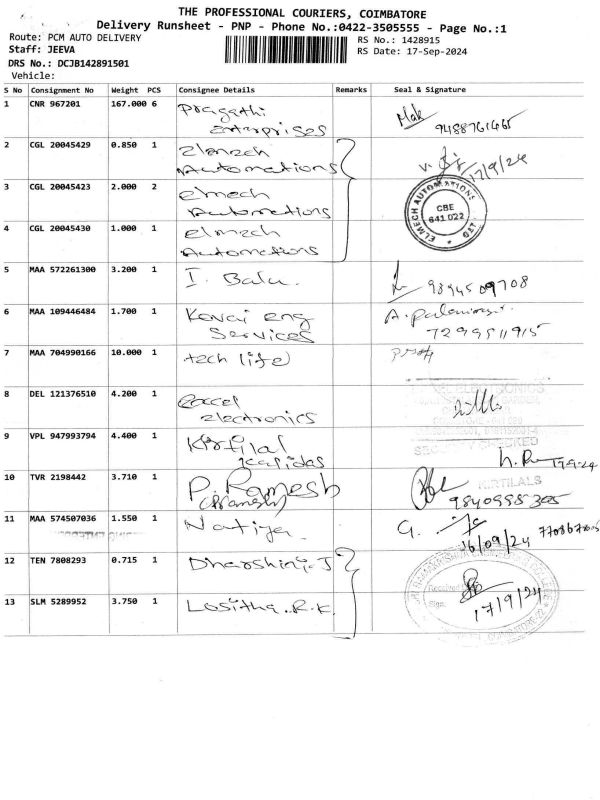 THE PROFESSIONAL COURIERS, COIMBATORE
Delivery Runsheet - PNP - Phone No.:0422-3505555 - Page No.:1
Route: PCM AUTO DELIVERY
RS No.: 1428915
Staff: JEEVA
RS Date: 17-Sep-2024
DRS No.: DCJB142891501
Vehicle:
S No Consignment No Weight PCS Consignee Details Remarks Seal & Signature
1 CNR 967201 167.000 6 Pragathi
enterprises
9488761465
2 CGL 20045429 0.850 1 Elmech
Automations
17/9/24
3 CGL 20045423 2.000 2 elmech
Automations
ELMECH AUTOMATIONS LTD
CBE
641 022
4 CGL 20045430 1.000 1 elmech
Automations
5 MAA 572261300 3.200 1 I. Balu.
9894509708
6 MAA 109446484 1.700 1 Kovai eng
Services
7299511915
7 MAA 704990166 10.000 1 tech life
8 DEL 121376510 4.200 1 Excel
electronics
9 VPL 947993794 4.400 1 Kirtilal
Kalidas
SECURITY CHECKED
10 TVR 2198442 3.710 1 P. Ramesh
KIRTILALS
9840995305
11 MAA 574507036 1.550 1 Natiya.
16/09/24
12 TEN 7808293 0.715 1 Dharshini.J
Received
13 SLM 5289952 3.750 1 Lositha.R.K.
Sign.
17/9/24